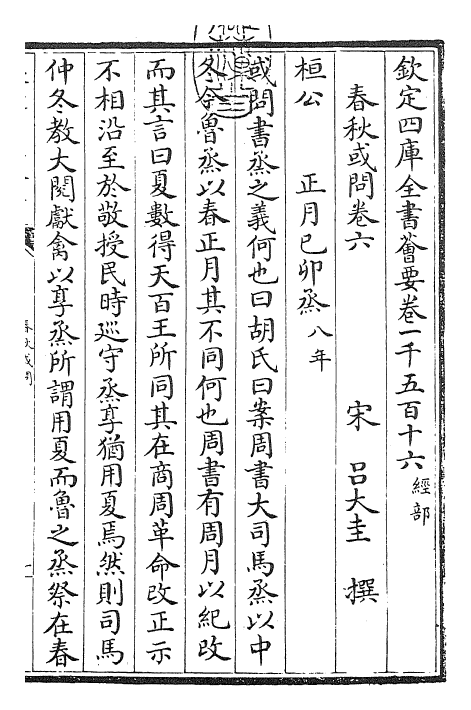 欽定四庫全書薈要卷一千五百十六 經部
春秋或問卷六
宋 呂大圭 撰
桓公 正月己卯烝 八年
或問書烝之義何也曰胡氏曰案周書大司馬烝以中
冬今魯烝以春正月其不同何也周書有周月以紀改
而其言曰夏數得天百王所同其在商周革命改正示
不相沿至於敬授民時廵守烝享猶用夏焉然則司馬
仲冬教大閱獻禽以享烝所謂用夏而魯之烝祭在春
春秋或問